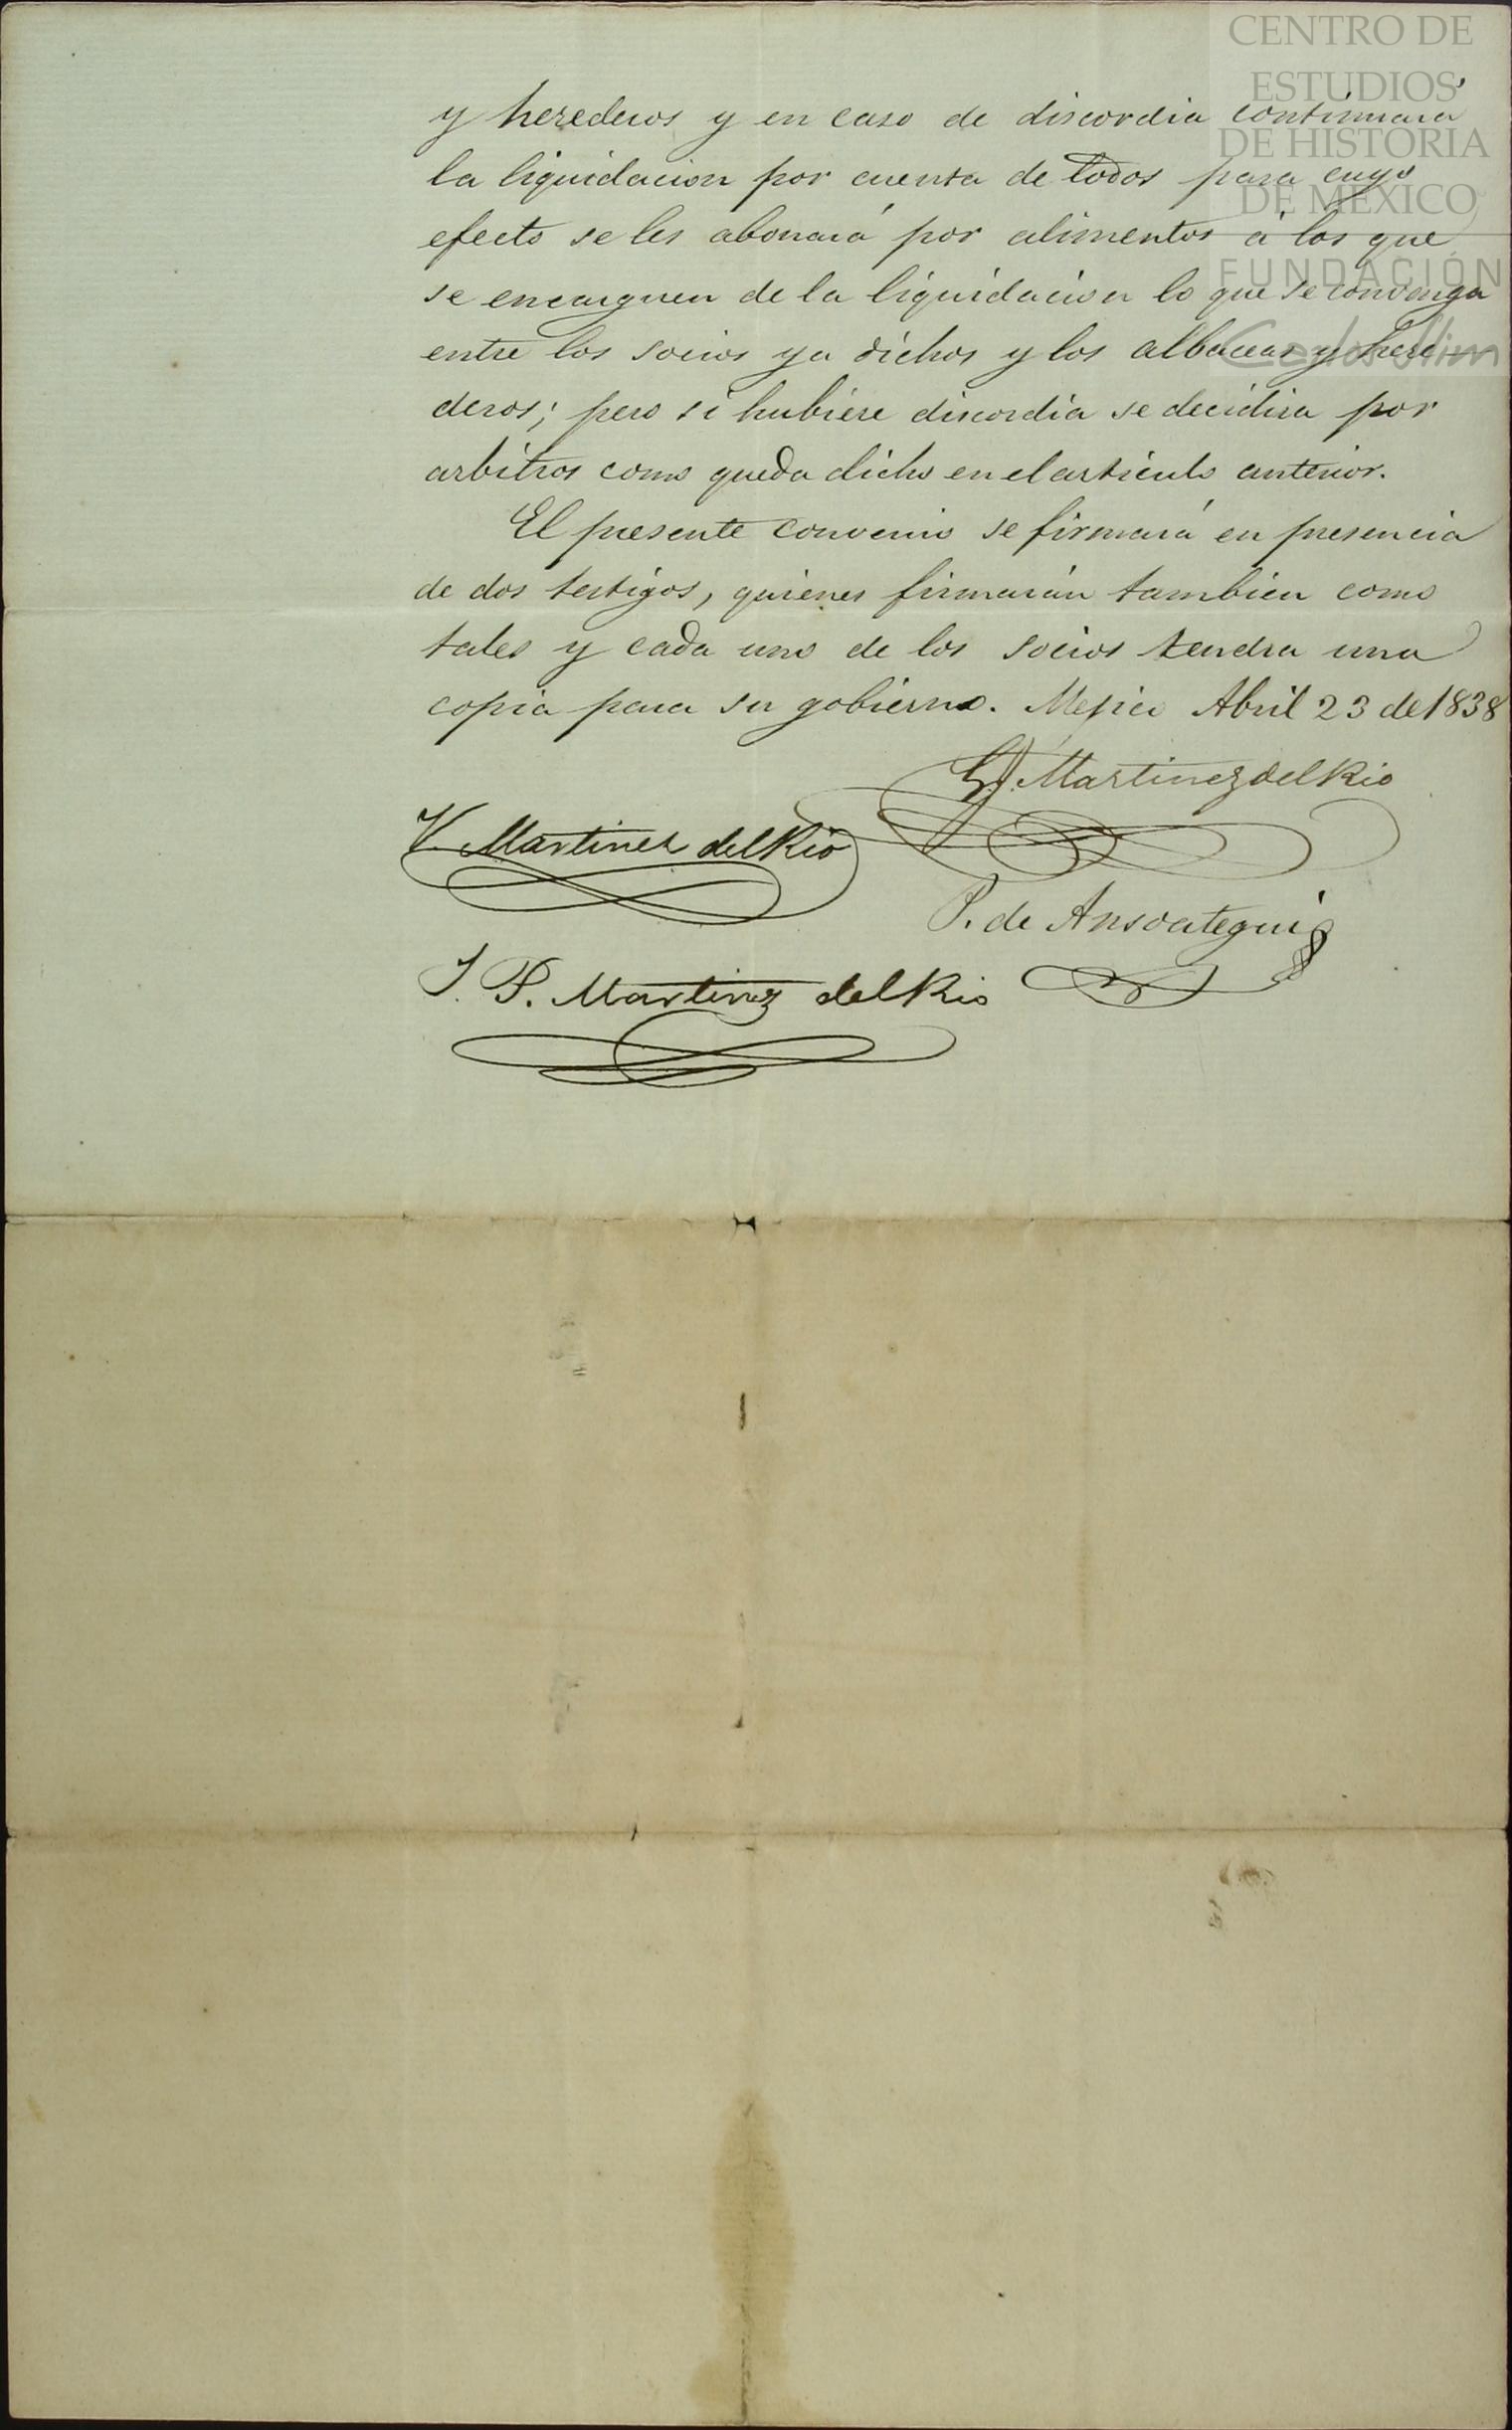 CENTRO DE
ESTUDIOS
DE HISTORIA
DE MÉXICO
FUNDACIÓN
Carlos Slim
y herederos y en caso de discordia continuará
la liquidacion por cuenta de todos para cuyo
efecto se les abonará por alimentos á los que
se encarguen de la liquidacion lo que se convenga
entre los socios ya dichos y los albaceas y here-
deros; pero si hubiere discordia se decidira por
arbitros como queda dicho en el articulo anterior.
El presente convenio se firmará en presencia
de dos testigos, quienes firmarán tambien como
tales y cada uno de los socios tendra una
copia para su gobierno. Mejico Abril 23 de 1838
G. J. Martinez del Rio
V. Martinez del Rio
P. de Ansoategui
J. P. Martinez del Rio